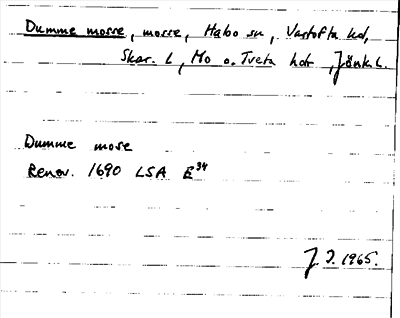 Dumme mosse, mosse, Habo sn, Vartofta hd,
Skar. L, Mo o. Tveta hdr, Jönk. L.
Dumme mose
Renov. 1690 LSA E³⁴
J. I. 1965.